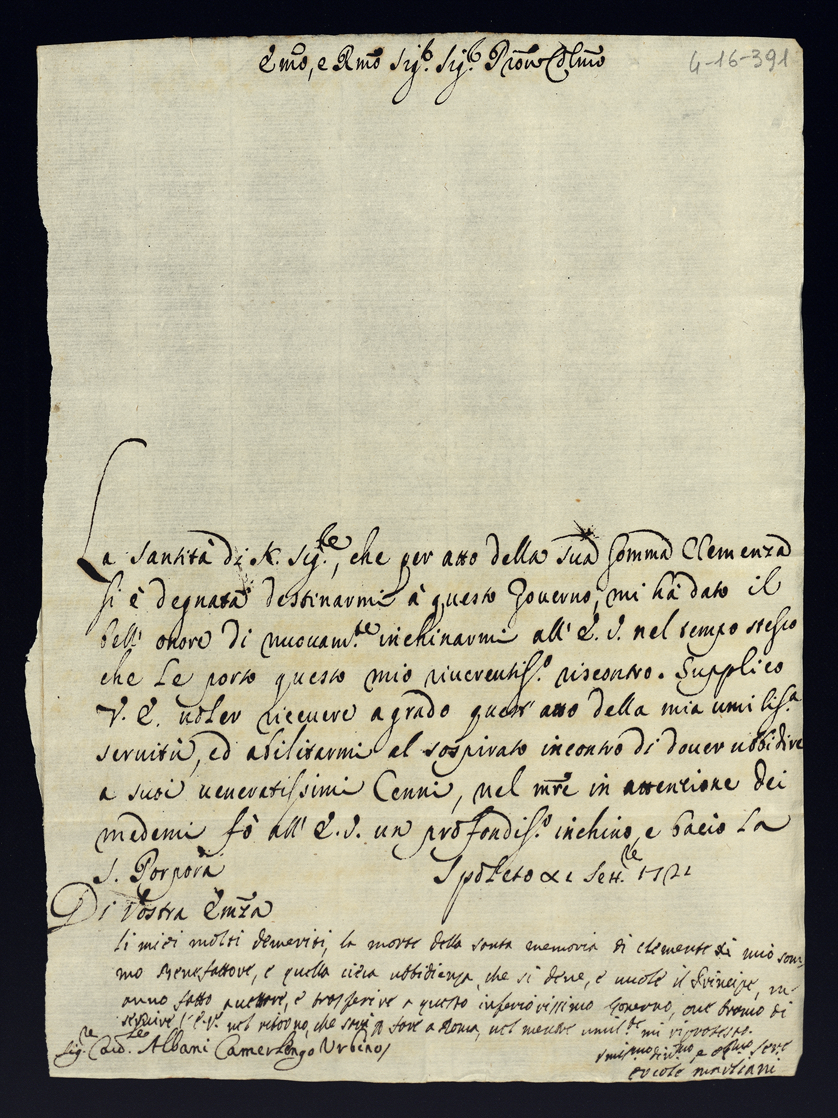 Emo, e Rmo Sig.r Sig.r Pron Colmo
4-16-391
La Santità di N. Sig.re, che per atto della sua somma Clemenza
si è degnata destinarmi à questo Governo, mi hà dato il
bell' onore di nuovam.te inchinarmi all' E. V. nel tempo stesso
che Le porto questo mio riverentiss.o riscontro. Supplico
V. E. voler ricevere a grado quest' atto della mia umiliss.a
servitù, ed abilitarmi al sospirato incontro di dover ubbidire
a suoi veneratissimi Cenni, nel mre in attenzione dei
medemi fò all' E. V. un profondiss.o inchino, e bacio La
S. Porpora Spoleto Sett.re 1721
Di Vostra Emza
li miei molti demeriti, la morte della santa memoria di Clemente XI mio som-
mo Benefattore, e quella cieca ubbidienza, che si deve, e vuole il Principe, m'
anno fatto accettare, e trasferire a questo inferiorissimo Governo, ove bramo di
servire l'E.V. nel ritorno, che sarà p fare a Roma, nel mentre umilte mi riprotesto
Sig.re Card.le Albani Camerlengo Urbino
umilmo divmo e obmo serre
Ercole